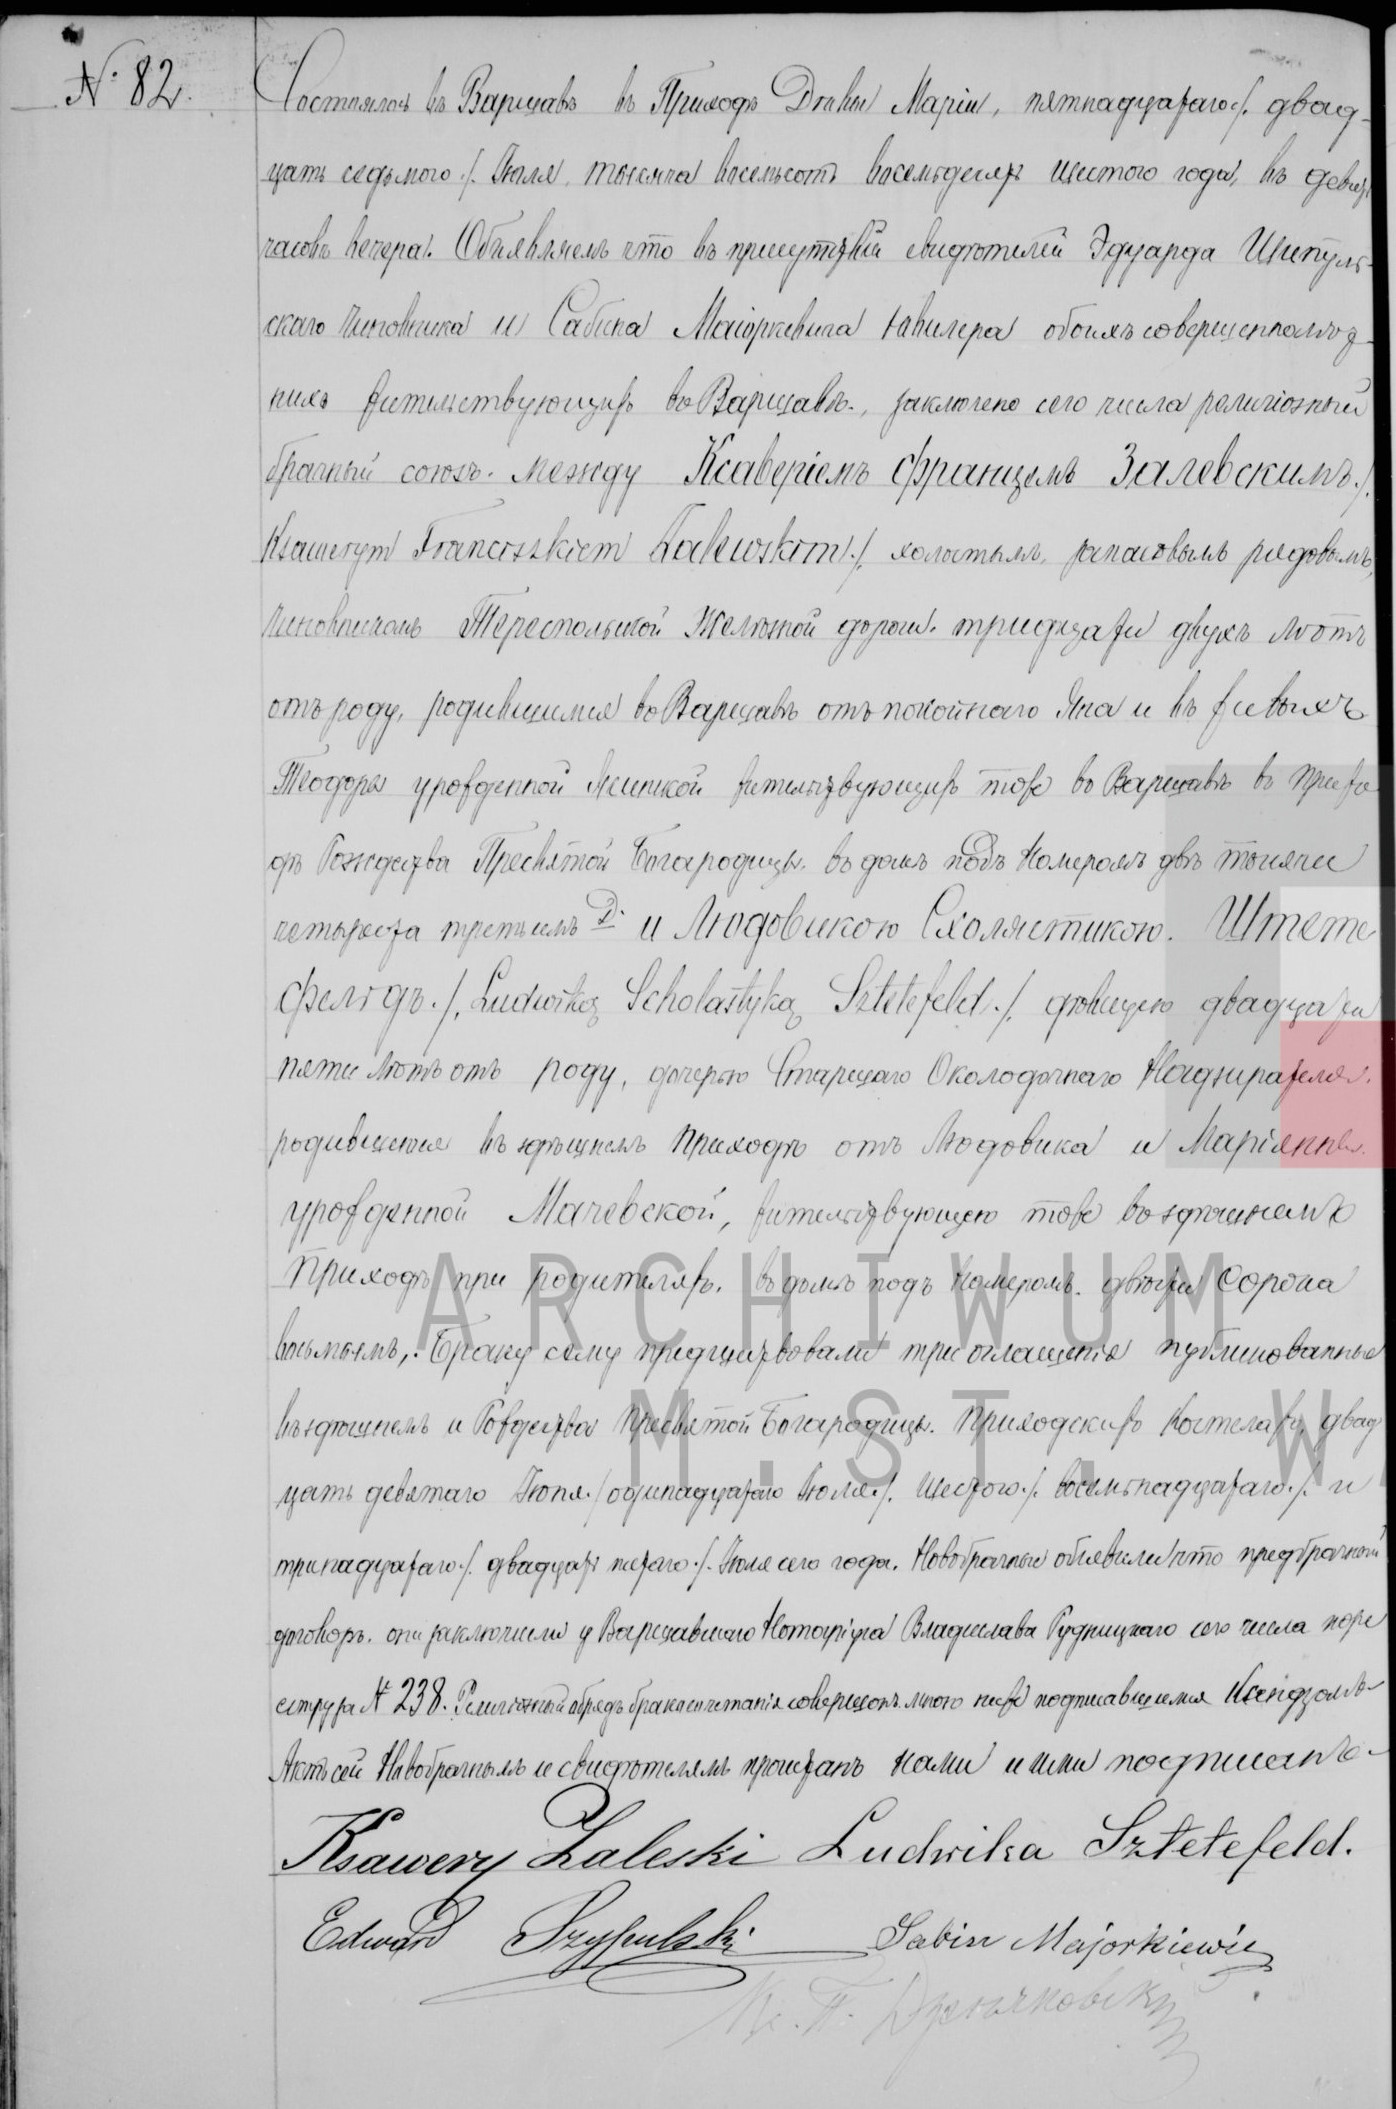 № 82.
Состоялось въ Варшавѣ въ Приходѣ Дѣвы Маріи, пятнадцатаго /. двад-
цать седьмого ./. Іюля, тысяча восемьсотъ восемьдесятъ шестого года, въ девять
часовъ вечера. Объявляемъ что въ присутствіи свидѣтелей Эдуарда Шипуль-
скаго Чиновника и Сабина Маіоркевича ювилера обоихъ совершеннолѣт-
нихъ жительствующихъ въ Варшавѣ, заключено сего числа религіозный
брачный союзъ. между Ксаверіемъ Францемъ Залевскимъ ./.
Ksawerym Franciszkiem Zalewskim ./. холостымъ, запасовымъ рядовымъ,
чиновникомъ Тереспольской Желѣзной дороги, тридцати двухъ лѣтъ
отъ роду, родившимся въ Варшавѣ отъ покойнаго Яна и въ живыхъ
Теодоры урожденной жительствующихъ тоже въ Варшавѣ въ Прихо
дѣ Рождества Пресвятой Богородицы. въ домѣ подъ Номеромъ двѣ тысячи
четыреста третьемъ D. и Людовикою Схолястикою. Штете
фельдъ ./. Ludwiką Scholastyką Sztetefeld ./. дѣвицею двадцати
пяти лѣтъ отъ роду, дочерью Старшаго Околодочнаго Надзирателя.
родившеюся въ здѣшнемъ Приходѣ отъ Людовика и Маріянны.
урожденной Мачевской, жительствующею тоже въ здѣшнемъ
Приходѣ при родителяхъ. въ домѣ подъ Номеромъ. двѣсти Сорокъ
восьмымъ,. Браку сему предшествовали три оглашенія публикованные
въ здѣшнемъ и Рождества Пресвятой Богородицы. Приходскихъ Костелахъ, двад
цать девятаго Іюня ./ одинадцатаго Іюля ./. Шестого ./. восемьнадцатаго ./. и
тринадцатаго ./. двадцать пятаго ./. Іюля сего года. Новобрачные объявили что предбрачный
договоръ. они заключили у Варшавскаго Нотаріуса Владислава Рудницкаго сего числа по ре
естру за № 238. Религіозный обрядъ бракосочетанія совершонъ мною ниже подписавшимся Ксендзомъ
Актъ сей Новобрачнымъ и свидѣтелямъ прочитанъ Нами и ими подписанъ
Ksawery Zaleski Ludwika Sztetefeld.
Edward Szypulski Sabin Majorkiewicz
ARCHIWUM
M. ST. W